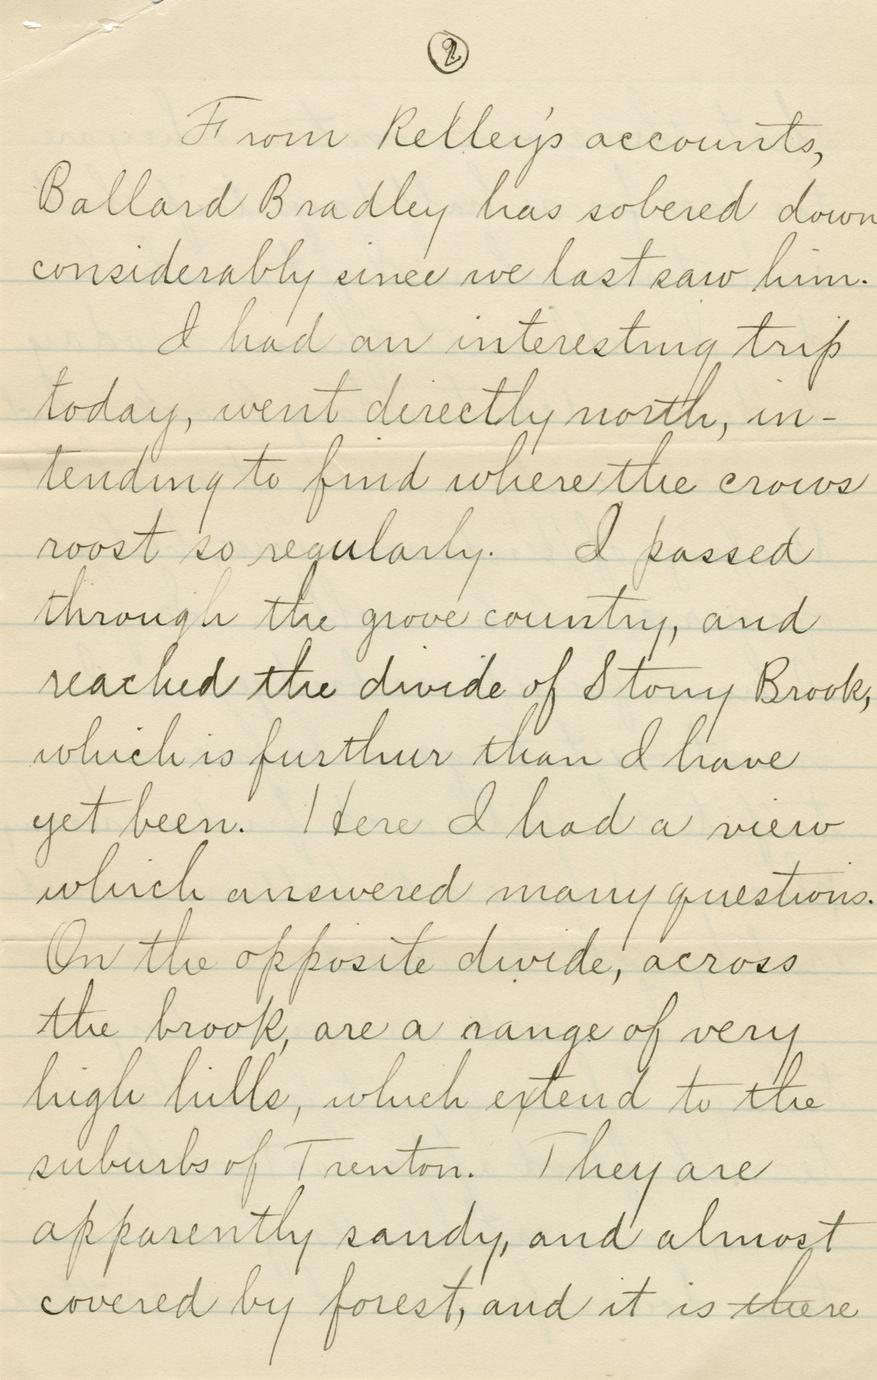 2
From Kelley's accounts,
Ballard Bradley has sobered down
considerably since we last saw him.
I had an interesting trip
today, went directly north, in-
tending to find where the crows
roost so regularly. I passed
through the grove country, and
reached the divide of Stony Brook,
which is further than I have
yet been. Here I had a view
which answered many questions.
On the opposite divide, across
the brook, are a range of very
high hills, which extend to the
suburbs of Trenton. They are
apparently sandy, and almost
covered by forest, and it is there